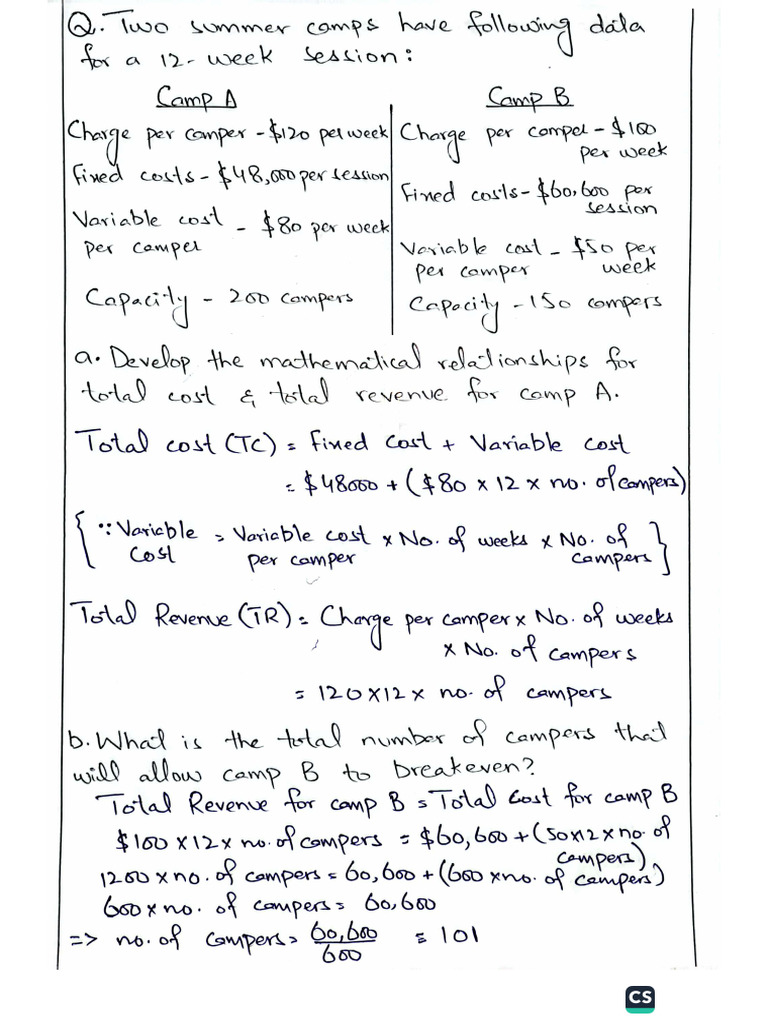 Q. Two summer camps have following data
for a 12-week session:
Camp A
Charge per camper - $120 per week
Fixed costs - $48,000 per session
Variable cost per camper - $80 per week
Capacity - 200 campers
Camp B
Charge per camper - $100 per week
Fixed costs - $60,600 per session
Variable cost per camper - $50 per week
Capacity - 150 campers
a. Develop the mathematical relationships for
total cost & total revenue for camp A.
Total cost (TC) = Fixed Cost + Variable cost
= $48000 + ($80 x 12 x no. of campers)
{ ∵ Variable Cost = Variable cost per camper x No. of weeks x No. of campers }
Total Revenue (TR) = Charge per camper x No. of weeks
x No. of campers
= 120 x 12 x no. of campers
b. What is the total number of campers that
will allow camp B to breakeven?
Total Revenue for camp B = Total Cost for camp B
$100 x 12 x no. of campers = $60,600 + (50x12 x no. of
campers)
1200 x no. of campers = 60,600 + (600 x no. of campers)
600 x no. of campers = 60,600
=> no. of campers = 60,600/600 = 101
CS